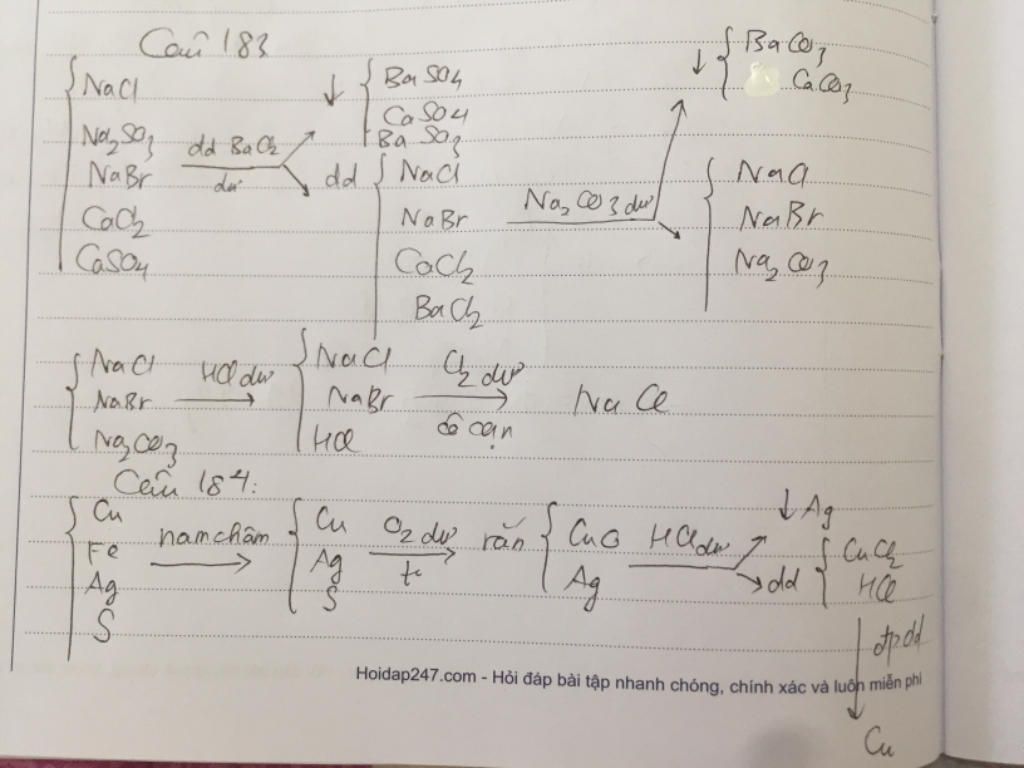 Câu 183
NaCl
Na2SO3
NaBr
CaCl2
CaSO4
dd BaCl2
dư
↓ BaSO4
CaSO4
BaSO3
dd NaCl
NaBr
CaCl2
BaCl2
Na2CO3 dư
↓ BaCO3
CaCO3
NaCl
NaBr
Na2CO3
NaCl
NaBr
Na2CO3
HCl dư
NaCl
NaBr
HCl
Cl2 dư
cô cạn
NaCl
Câu 184:
Cu
Fe
Ag
S
nam châm
Cu
Ag
S
O2 dư
rắn CuO
Ag
HCl dư
↓ Ag
dd CuCl2
HCl
đpdd
Cu
Hoidap247.com - Hỏi đáp bài tập nhanh chóng, chính xác và luôn miễn phí